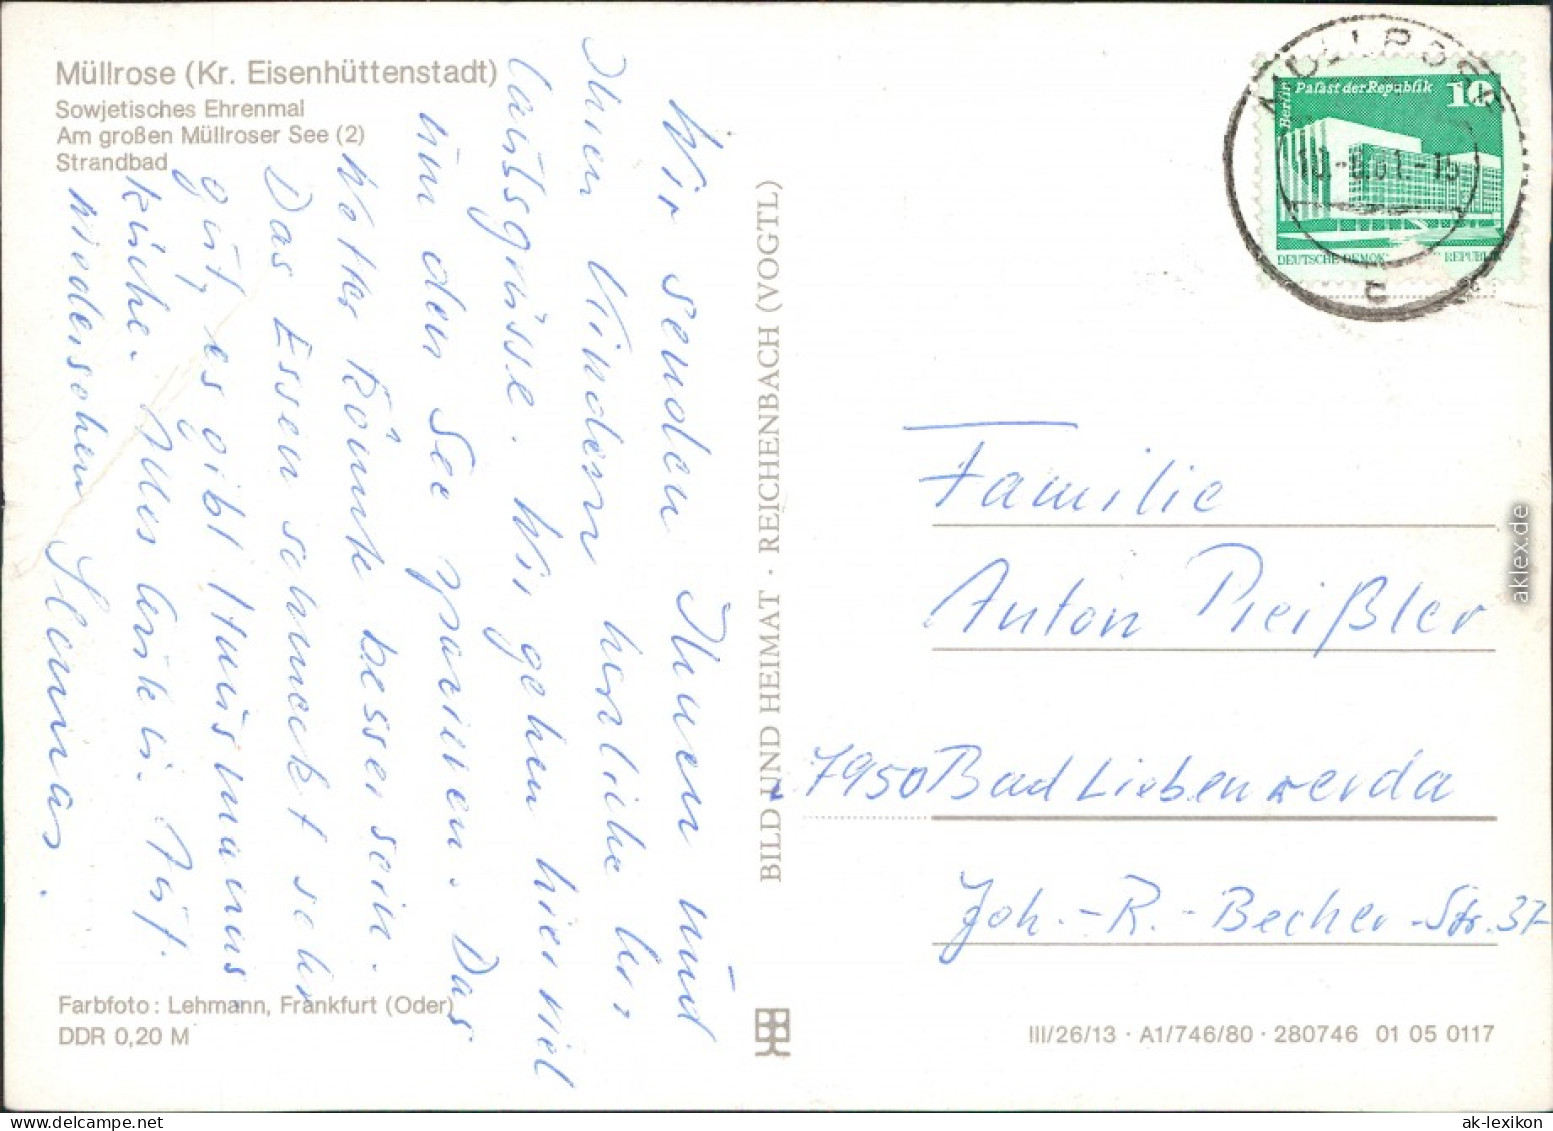 Müllrose (Kr. Eisenhüttenstadt)
Sowjetisches Ehrenmal
Am großen Müllroser See (2)
Strandbad
Wir senden Ihnen und
Ihren Kindern herzliche Ur-
laubsgrüsse. Wir gehen hier viel
um den See spazieren. Das
Wetter könnte besser sein.
Das Essen schmeckt sehr
gut, es gibt Hausmanns-
küche. Alles Gute
wiedersehen
Farbfoto: Lehmann, Frankfurt (Oder)
DDR 0,20 M
BILD UND HEIMAT · REICHENBACH (VOGTL)
MÜLLROSE
Berlin
Palast der Republik
10
DEUTSCHE DEMOK REPUBLIK
Familie
Anton Preißler
7950 Bad Liebenwerda
Joh.-R.-Becher-Str. 37
III/26/13 · A1/746/80 · 280746 01 05 0117
aklex.de
ak-lexikon